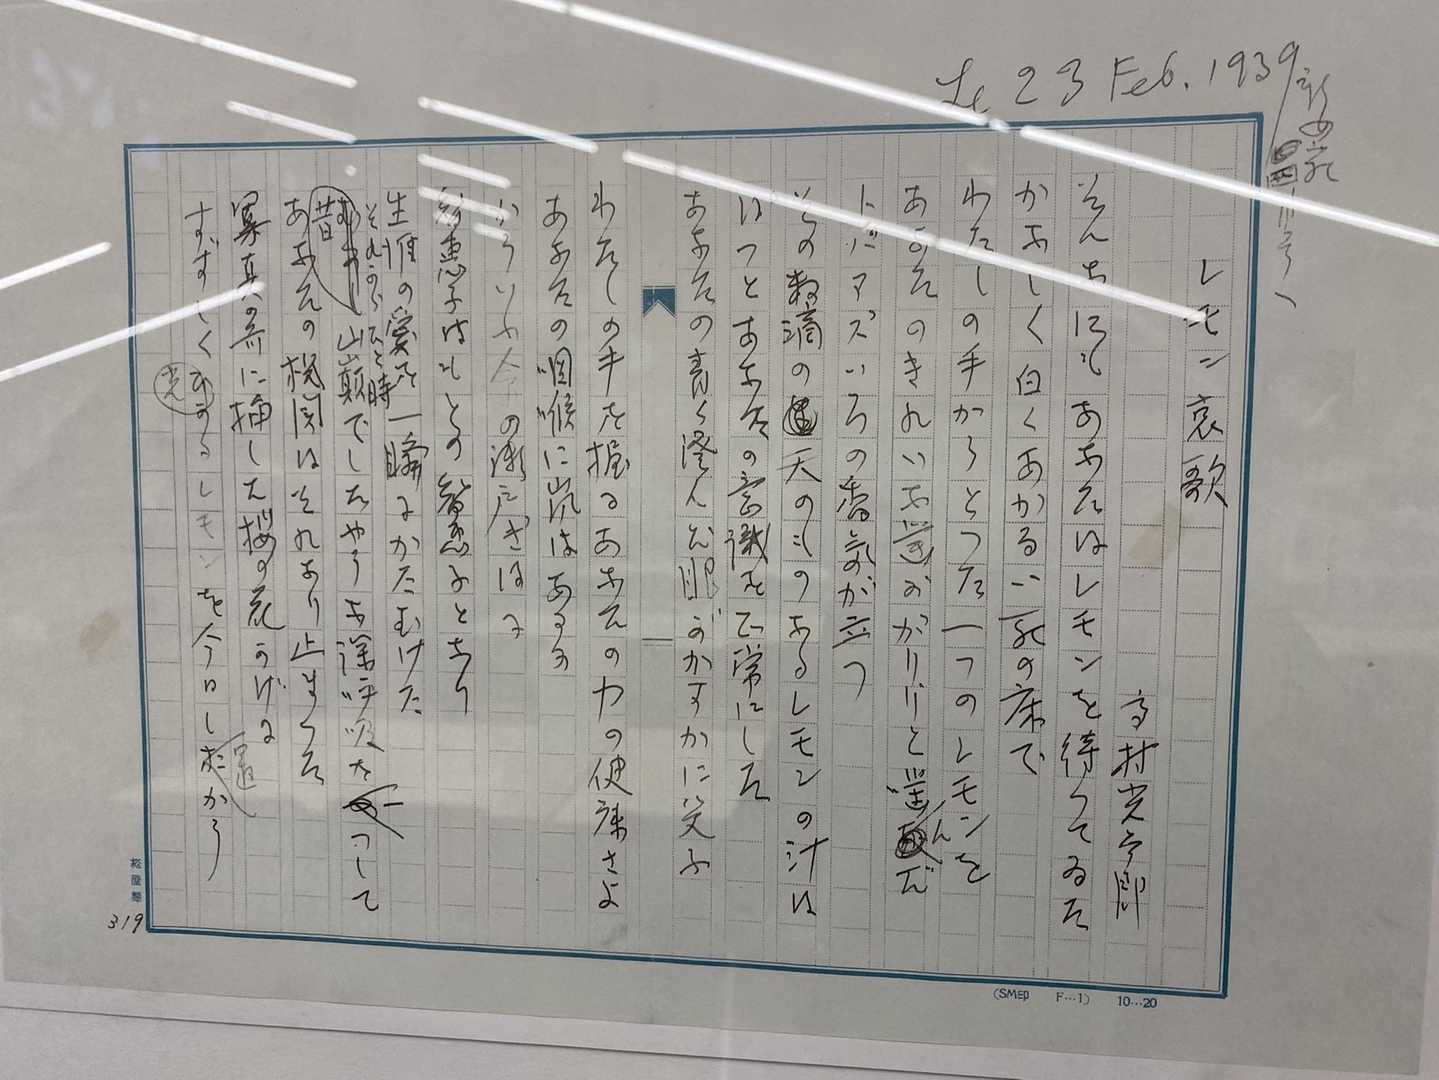 Le 23 Feb. 1939
新女苑
レモン哀歌
高村光太郎
そんなにもあなたはレモンを待つてゐた
かなしく白くあかるい死の床で
わたしの手からとつた一つのレモンを
あなたのきれいな歯ががりりと噛んだ
トパアズいろの香気が立つ
その数滴の天のものなるレモンの汁は
ぱつとあなたの意識を正常にした
あなたの青く澄んだ眼がかすかに笑ふ
わたしの手を握るあなたの力の健康さよ
あなたの咽喉に嵐はあるが
かういふ命の瀬戸ぎはに
智恵子はもとの智恵子となり
生涯の愛を一瞬にかたむけた
それからひと時
昔山巓でしたやうな深呼吸を一つして
あなたの機関はそれなり止まつた
写真の前に挿した桜の花かげに
すずしく光るレモンを今日も置かう
319
(SM印 F…1) 10…20